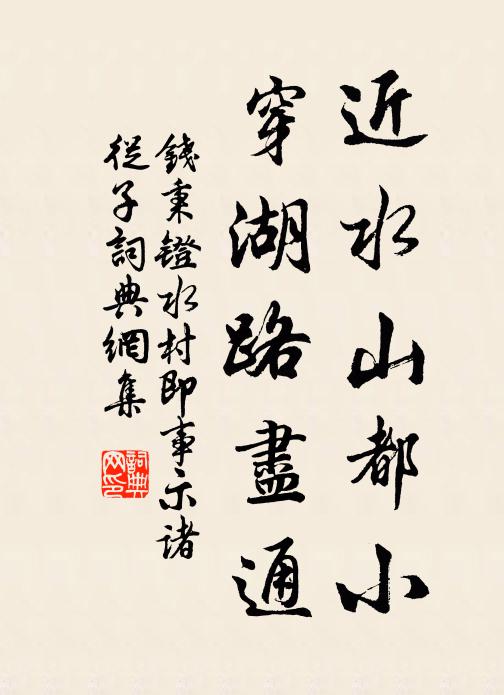 近水山都小
穿湖路盡通
錢秉鐙水村即事示諸
從子詞典網集
詞典網印